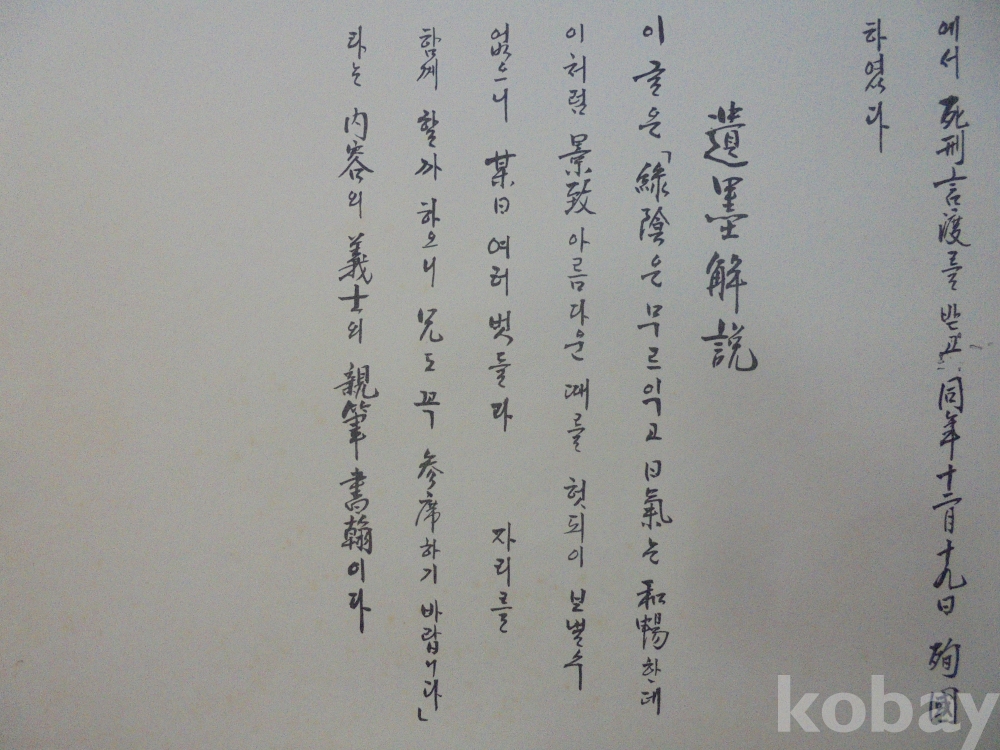 에서 死刑言渡를 받고 同年 十二月 十九日 殉國
하였다
遺墨解説
이 글은「綠陰은 무르익고 日氣는 和暢한데
이처럼 景致 아름다운 때를 헛되이 보낼수
없으니 某日 여러 벗들과 자리를
함께 할까 하오니 兄도 꼭 參席하기 바랍니다」
라는 內容의 義士의 親筆 書翰이다
kobay